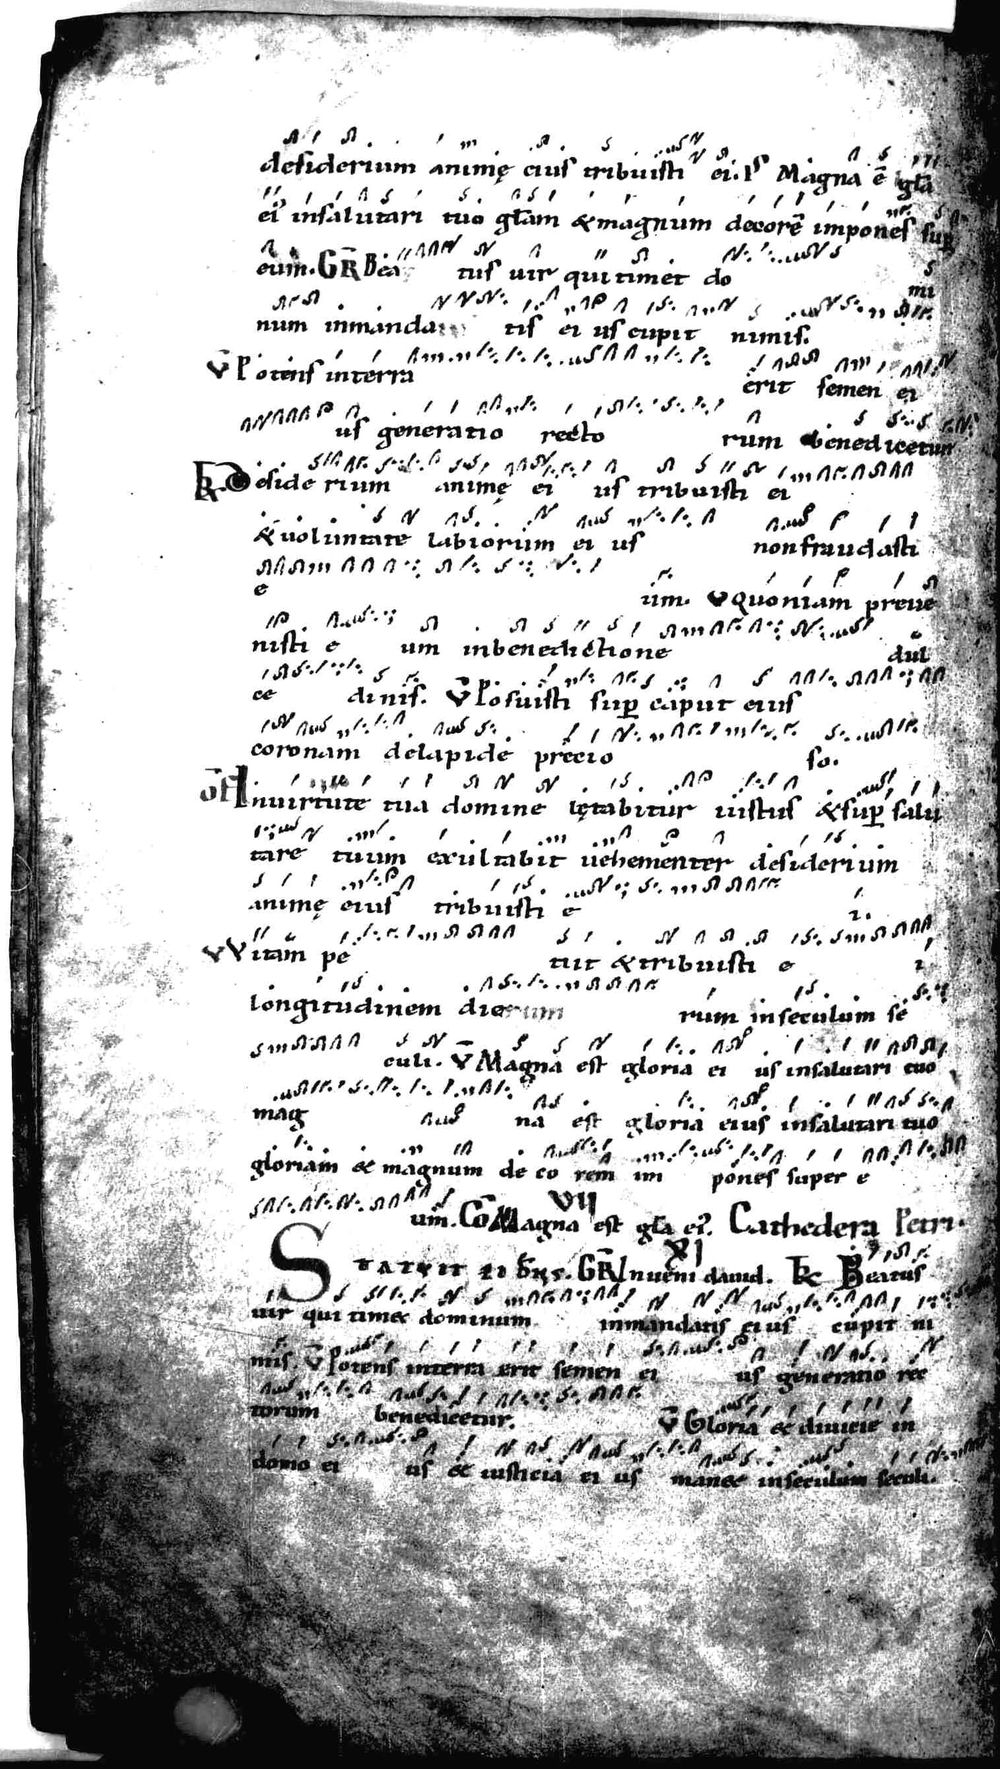 desiderium animę eius tribuisti ei. Ps Magna ē gła
ei insalutari tuo głam & magnum decorē impones sup
eum. GR Bea tus uir qui timet do
mi
num inmanda tis ei us cupit nimis.
V Potens interra erit semen ei
us generatio recto rum benedicetur
R Deside rium animę ei us tribuisti ei
& uoluntate labiorum ei us non fraudasti
e um. V Quoniam preue
nisti e um inbenedictione dul
ce dinis. V Posuisti sup caput eius
coronam delapide precio so.
OF Inuirtute tua domine lętabitur iustus & sup salu
tare tuum exultabit uehementer desiderium
animę eius tribuisti e i.
V Vitam pe tiit & tribuisti e i
longitudinem die rum inseculum se
culi. V Magna est gloria ei us insalutari tuo
mag na est gloria eius insalutari tuo
gloriam & magnum de co rem im pones super e
um. CO Magna est gła ei. Cathedera Petri.
VII
STATUIT EI DNS. GR Inueni dauid. R Beatus
XI
uir qui timet dominum inmandatis ei us cupit ni
mis. V Potens interra erit semen ei us generatio rec
torum benedicetur. V Gloria & diuicie in
domo ei us & iusticia ei us manet inseculum seculi.